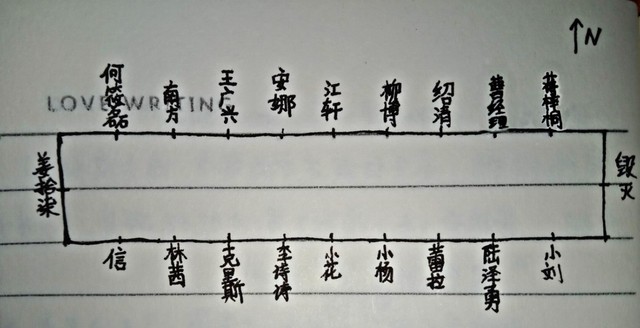 ↑N
何筱磊 南方 王广兴 安娜 江轩 柳博 绍清 黄经理 蒋梓桐
LOVE WRITING
姜拾柒 毁灭
信 林茜 克里斯 李诗诗 小花 小杨 蕾拉 陆泽勇 小刘